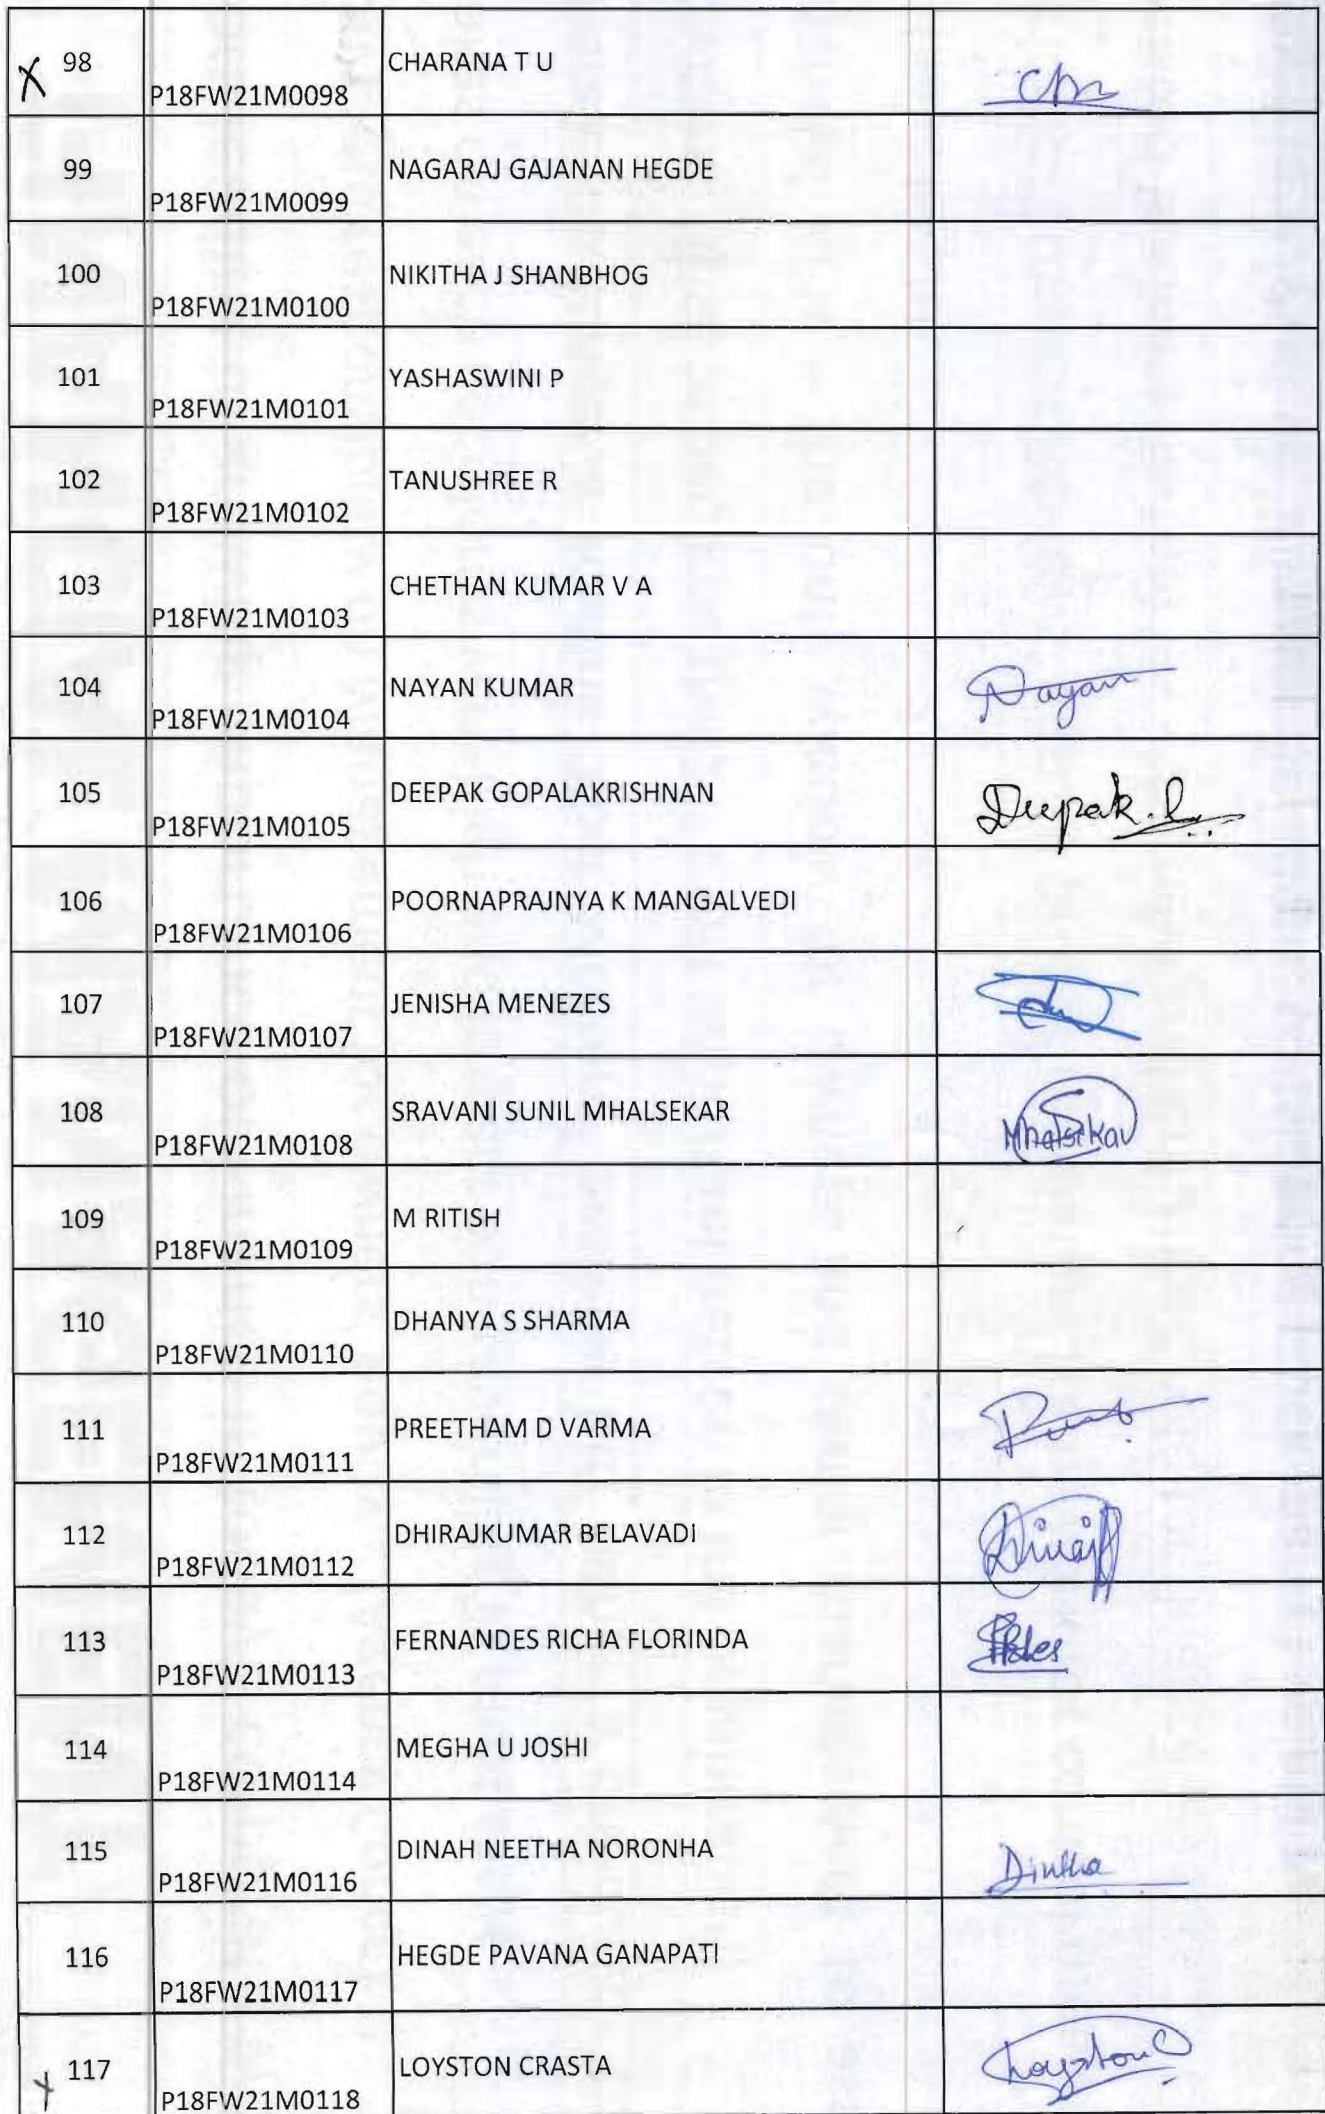 X 98 P18FW21M0098 CHARANA T U
99 P18FW21M0099 NAGARAJ GAJANAN HEGDE
100 P18FW21M0100 NIKITHA J SHANBHOG
101 P18FW21M0101 YASHASWINI P
102 P18FW21M0102 TANUSHREE R
103 P18FW21M0103 CHETHAN KUMAR V A
104 P18FW21M0104 NAYAN KUMAR Nayan
105 P18FW21M0105 DEEPAK GOPALAKRISHNAN Deepak.
106 P18FW21M0106 POORNAPRAJNYA K MANGALVEDI
107 P18FW21M0107 JENISHA MENEZES
108 P18FW21M0108 SRAVANI SUNIL MHALSEKAR Mhalsekar
109 P18FW21M0109 M RITISH
110 P18FW21M0110 DHANYA S SHARMA
111 P18FW21M0111 PREETHAM D VARMA
112 P18FW21M0112 DHIRAJKUMAR BELAVADI
113 P18FW21M0113 FERNANDES RICHA FLORINDA
114 P18FW21M0114 MEGHA U JOSHI
115 P18FW21M0116 DINAH NEETHA NORONHA
116 P18FW21M0117 HEGDE PAVANA GANAPATI
117 P18FW21M0118 LOYSTON CRASTA Loyston C